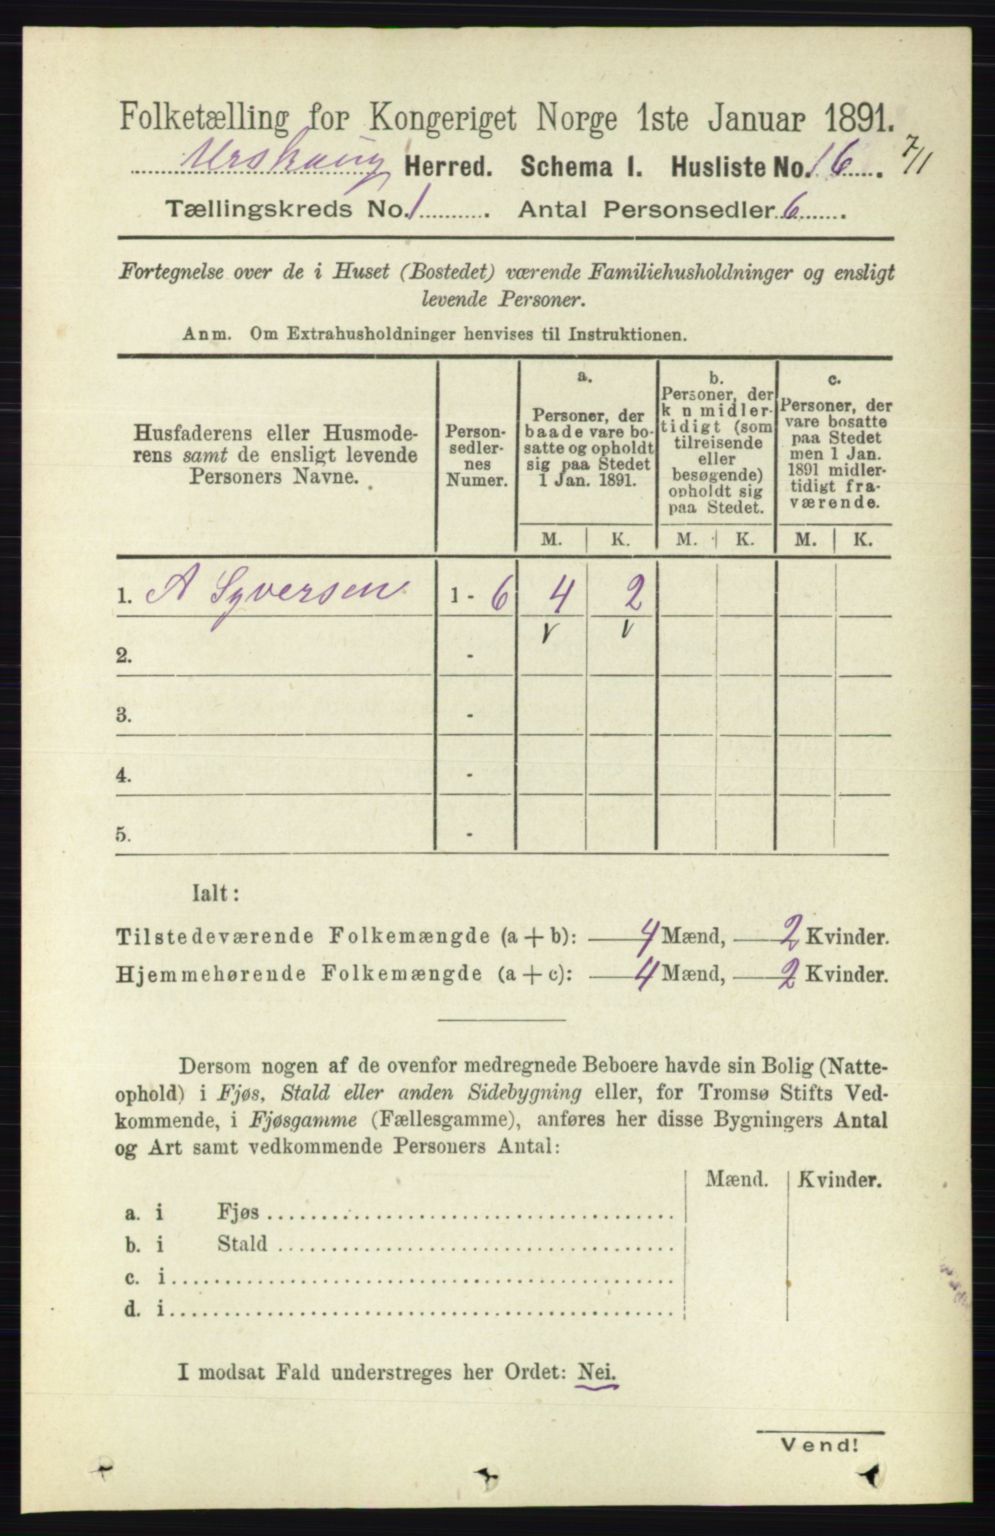 Folketælling for Kongeriget Norge 1ste Januar 1891.
Urskoug Herred. Schema I. Husliste No. 16. 7/1
Tællingskreds No. 1. Antal Personsedler 6.
Fortegnelse over de i Huset (Bostedet) værende Familiehusholdninger og ensligt
levende Personer.
Anm. Om Extrahusholdninger henvises til Instruktionen.
Husfaderens eller Husmode-
rens samt de ensligt levende
Personers Navne.
Person-
sedler-
nes
Numer.
a.
Personer, der
baade vare bo-
satte og opholdt
sig paa Stedet
1 Jan. 1891.
b.
Personer, der
k n midler-
tidigt (som
tilreisende
eller
besøgende)
opholdt sig
paa Stedet.
c.
Personer, der
vare bosatte
paa Stedet
men 1 Jan.
1891 midler-
tidigt fra-
værende.
M. K. M. K. M. K.
1. A Syversen 1 - 6 4 2
2. -
3. -
4. -
5. -
Ialt:
Tilstedeværende Folkemængde (a + b): 4 Mænd, 2 Kvinder.
Hjemmehørende Folkemængde (a + c): 4 Mænd, 2 Kvinder.
Dersom nogen af de ovenfor medregnede Beboere havde sin Bolig (Natte-
ophold) i Fjøs, Stald eller anden Sidebygning eller, for Tromsø Stifts Ved-
kommende, i Fjøsgamme (Fællesgamme), anføres her disse Bygningers Antal
og Art samt vedkommende Personers Antal:
Mænd. Kvinder.
a. i Fjøs
b. i Stald
c. i
d. i
I modsat Fald understreges her Ordet: Nei.
Vend!